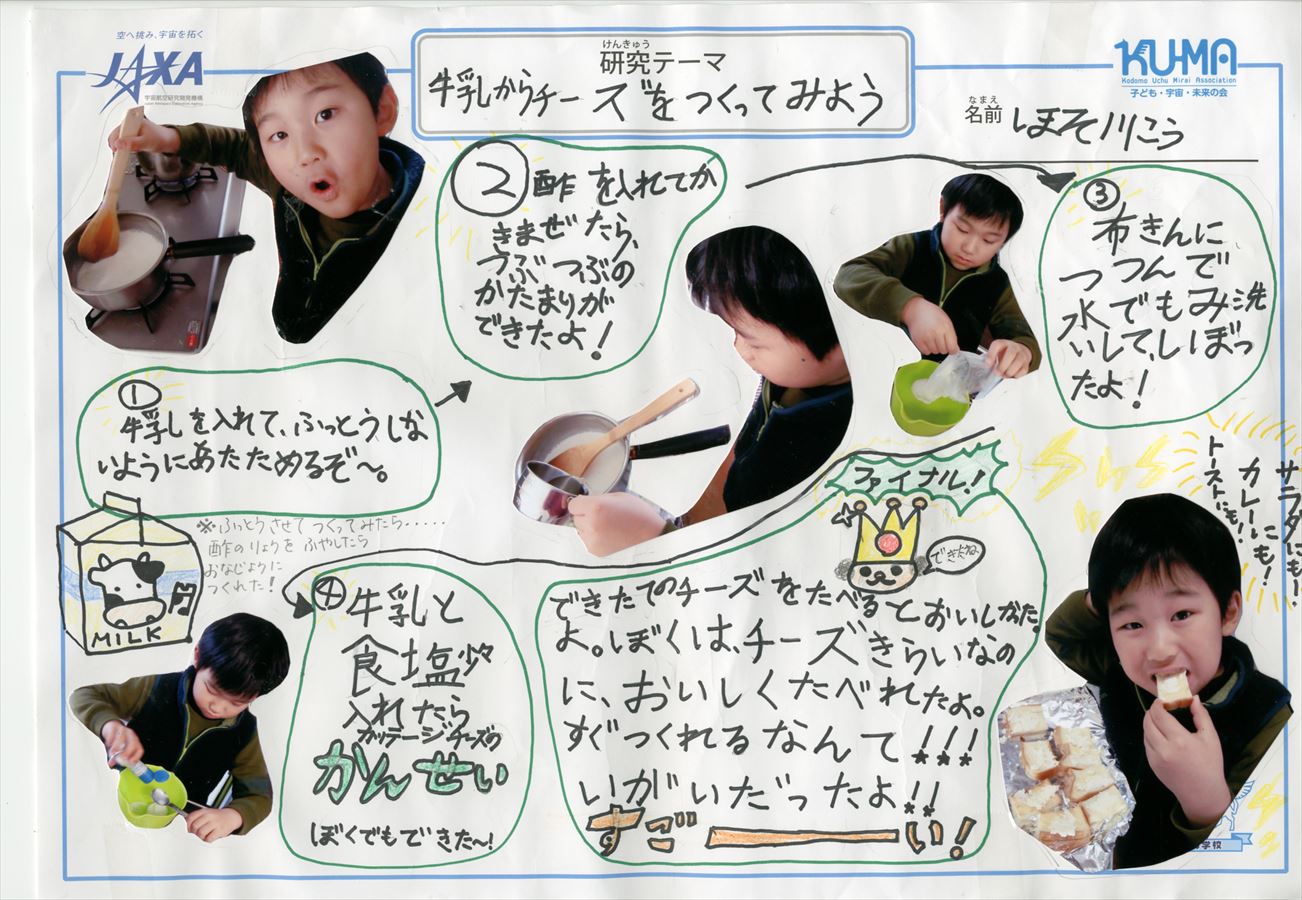 空へ挑み、宇宙を拓く
JAXA
宇宙航空研究開発機構
Japan Aerospace Exploration Agency
けんきゅう
研究テーマ
牛乳からチーズをつくってみよう
KU-MA
Kodomo Uchu Mirai Association
子ども・宇宙・未来の会
なまえ
名前 ほそ川こう
①
牛乳を入れて、ふっとうしな
いようにあたためるぞ〜。
※ふっとうさせてつくってみたら・・・・・
酢のりょうをふやしたら
おなじように
つくれた!
MILK
②酢を入れてか
きまぜたら、
つぶつぶの
かたまりが
できたよ!
③
布きんに
つつんで
水でもみ洗
いして、しぼっ
たよ!
④牛乳と
食塩少々
入れたら
カッテージチーズの
かんせい
ぼくでもできた〜!
ファイナル!
できたね
できたてのチーズをたべるとおいしかった
よ。ぼくは、チーズきらいなの
に、おいしくたべれたよ。
すぐつくれるなんて!!!
いがいだったよ!!
すごーい!
サラダにも!
カレーにも!
トーストにも!
学校